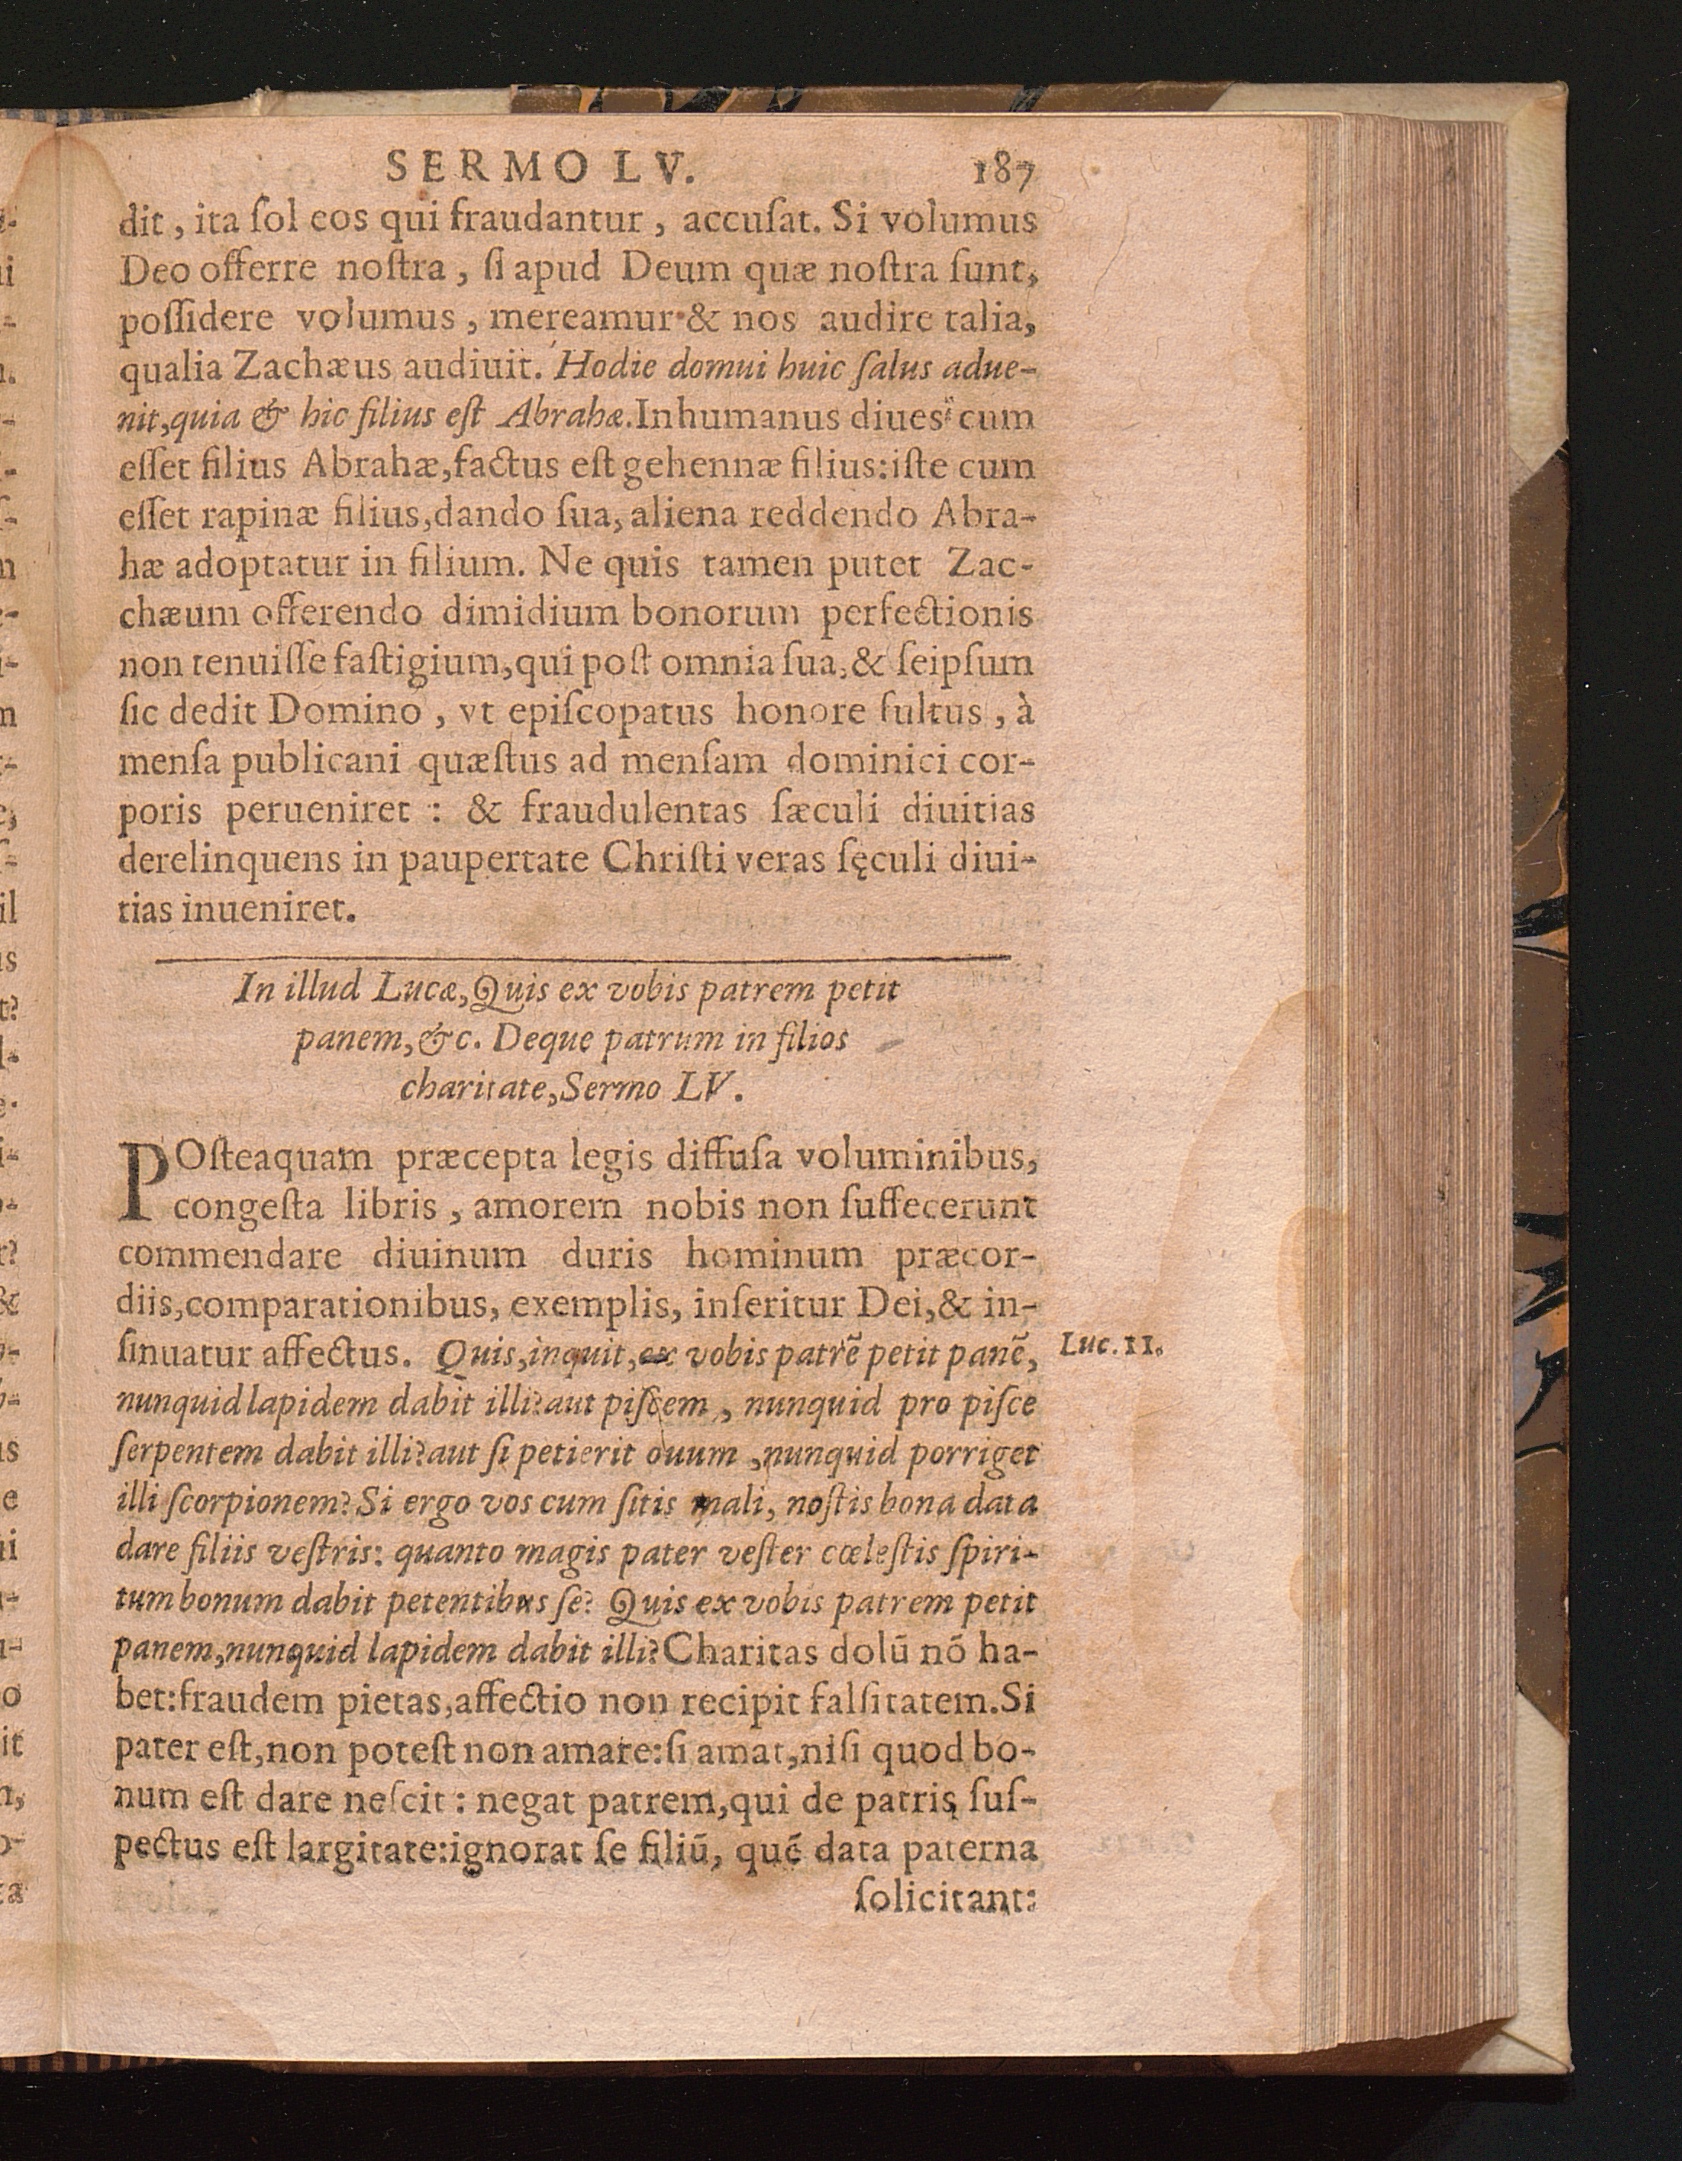 SERMO LV. 187
dit, ita ſol eos qui fraudantur, accuſat. Si volumus
Deo offerre noſtra, ſi apud Deum quæ noſtra ſunt,
poſſidere volumus, mereamur & nos audire talia,
qualia Zachæus audiuit. Hodie domui huic ſalus adue-
nit, quia & hic filius eſt Abrahæ. Inhumanus diues cum
eſſet filius Abrahæ, factus eſt gehennæ filius: iſte cum
eſſet rapinæ filius, dando ſua, aliena reddendo Abra-
hæ adoptatur in filium. Ne quis tamen putet Zac-
chæum offerendo dimidium bonorum perfectionis
non tenuiſſe faſtigium, qui poſt omnia ſua, & ſeipſum
ſic dedit Domino, vt epiſcopatus honore fultus, à
menſa publicani quæſtus ad menſam dominici cor-
poris perueniret : & fraudulentas ſæculi diuitias
derelinquens in paupertate Chriſti veras ſęculi diui-
tias inueniret.
In illud Lucæ, Quis ex vobis patrem petit
panem, &c. Deque patrum in filios
charitate, Sermo LV.
POſteaquam præcepta legis diffuſa voluminibus,
congeſta libris, amorem nobis non ſuffecerunt
commendare diuinum duris hominum præcor-
diis, comparationibus, exemplis, inſeritur Dei, & in-
ſinuatur affectus. Quis, inquit, ex vobis patrē petit panē,
Luc. 11.
nunquid lapidem dabit illi? aut piſcem, nunquid pro piſce
ſerpentem dabit illi? aut ſi petierit ouum, nunquid porriget
illi ſcorpionem? Si ergo vos cum ſitis mali, noſtis bona data
dare filiis veſtris: quanto magis pater veſter cœleſtis ſpiri-
tum bonum dabit petentibus ſe? Quis ex vobis patrem petit
panem, nunquid lapidem dabit illi? Charitas dolū nō ha-
bet: fraudem pietas, affectio non recipit falſitatem. Si
pater eſt, non poteſt non amare: ſi amat, niſi quod bo-
num eſt dare neſcit : negat patrem, qui de patris ſuſ-
pectus eſt largitate: ignorat ſe filiū, quē data paterna
ſolicitant: